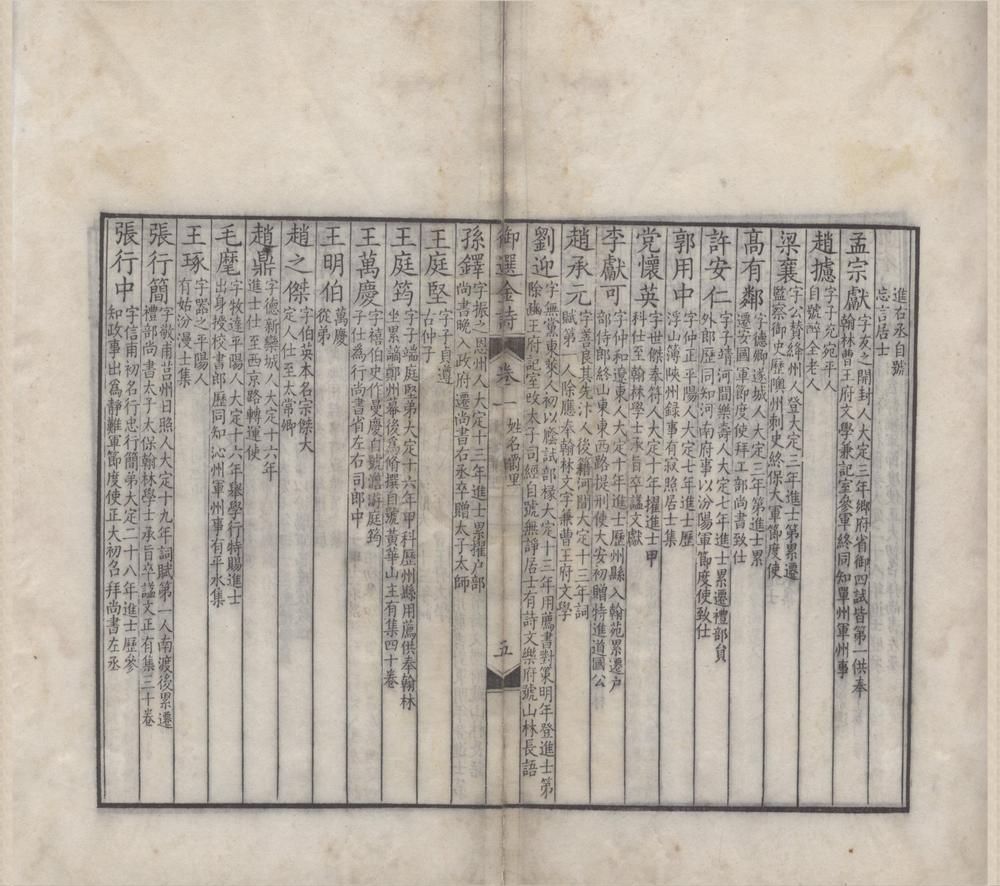 進右丞自號
忘言居士
孟宗獻字友之開封人大定三年鄉府省御四試皆第一供奉
翰林曹王府文學兼記室參軍終同知單州軍州事
趙攄字子充宛平人
自號醉全老人
梁襄字公贊絳州人登大定三年進士第累遷
監察御史歷隩州刺史終保大軍節度使
髙有鄰字德卿遂城人大定三年第進士累
遷安國軍節度使拜工部尚書致仕
許安仁字子靖河間樂壽人大定七年進士累遷禮部員
外郎歷同知河南府事以汾陽軍節度使致仕
郭用中字仲正平陽人大定七年進士歷
浮山簿陜州録事有寂照居士集
党懷英字世傑奉符人大定十年擢進士甲
科仕至翰林學士承旨卒諡文獻
李獻可字仲和遼東人大定十年進士歷州縣入翰苑累遷户
部侍郎終山東東西路提刑使大安初贈特進道國公
趙承元字善長其先汴人後籍河間大定十三年詞
賦第一人除應奉翰林文字兼曹王府文學
劉迎字無黨東萊人初以廕試部掾大定十三年用薦書對策明年登進士第
除豳王府記室改太子司經自號無諍居士有詩文樂府號山林長語
御選金詩 卷一 姓名爵里 五
孫鐸字振之恩州人大定十三年進士累擢户部
尚書晚入政府遷尚書右丞卒贈太子太師
王庭堅字子貞遵
右仲子
王庭筠字子端庭堅弟大定十六年甲科歷州縣用薦供奉翰林
坐累謫鄭州幕後為脩撰自號黃華山主有集四十卷
王萬慶字禧伯史作曼慶自號澹游庭筠
子仕為行尚書省左右司郎中
王明伯萬慶
從弟
趙之傑字伯英本名宗傑大
定人仕至太常卿
趙鼎字德新欒城人大定十六年
進士仕至西京路轉運使
毛麾字牧達平陽人大定十六年舉學行特賜進士
出身授校書郎歷同知沁州軍州事有平水集
王琢字器之平陽人
有姑汾漫士集
張行簡字敬甫莒州日照人大定十九年詞賦第一人南渡後累遷
禮部尚書太子太保翰林學士承旨卒諡文正有集三十卷
張行中字信甫初名行忠行簡弟大定二十八年進士歷參
知政事出為靜難軍節度使正大初召拜尚書左丞